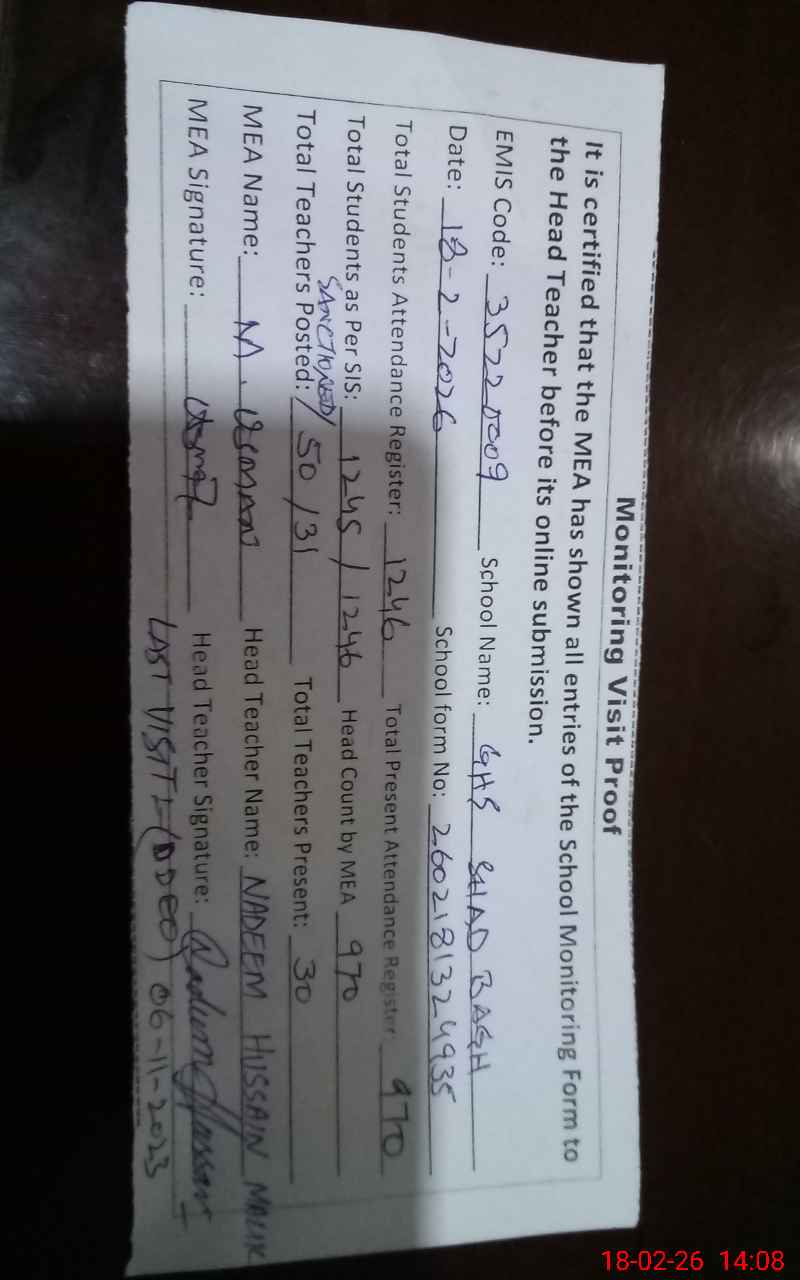 Monitoring Visit Proof
It is certified that the MEA has shown all entries of the School Monitoring Form to
the Head Teacher before its online submission.
EMIS Code: 35220009 School Name: GHS SHAD BAGH
Date: 18-2-2026 School form No: 2602181324935
Total Students Attendance Register: 1246 Total Present Attendance Register: 970
Total Students as Per SIS: 1245/1246 Head Count by MEA 970
SANCTIONED/
Total Teachers Posted: 50/31 Total Teachers Present: 30
MEA Name: M. USMAN Head Teacher Name: NADEEM HUSSAIN MALIK
MEA Signature: Head Teacher Signature: Nadeem Hussain
LAST VISIT:- (DDEO) 06-11-2023
18-02-26 14:08